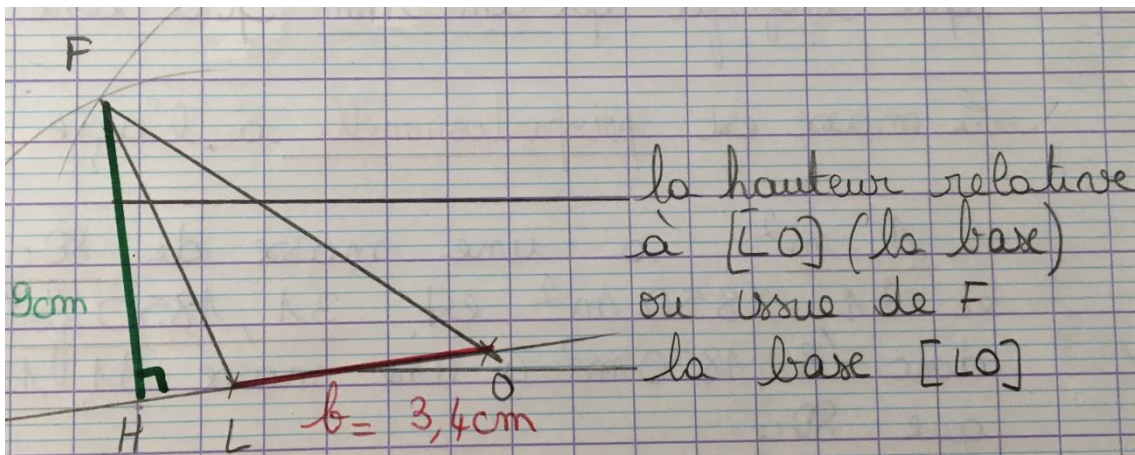 F
la hauteur relative
à [LO] (la base)
9cm
ou issue de F
la base [LO]
O
H
L
b = 3,4cm